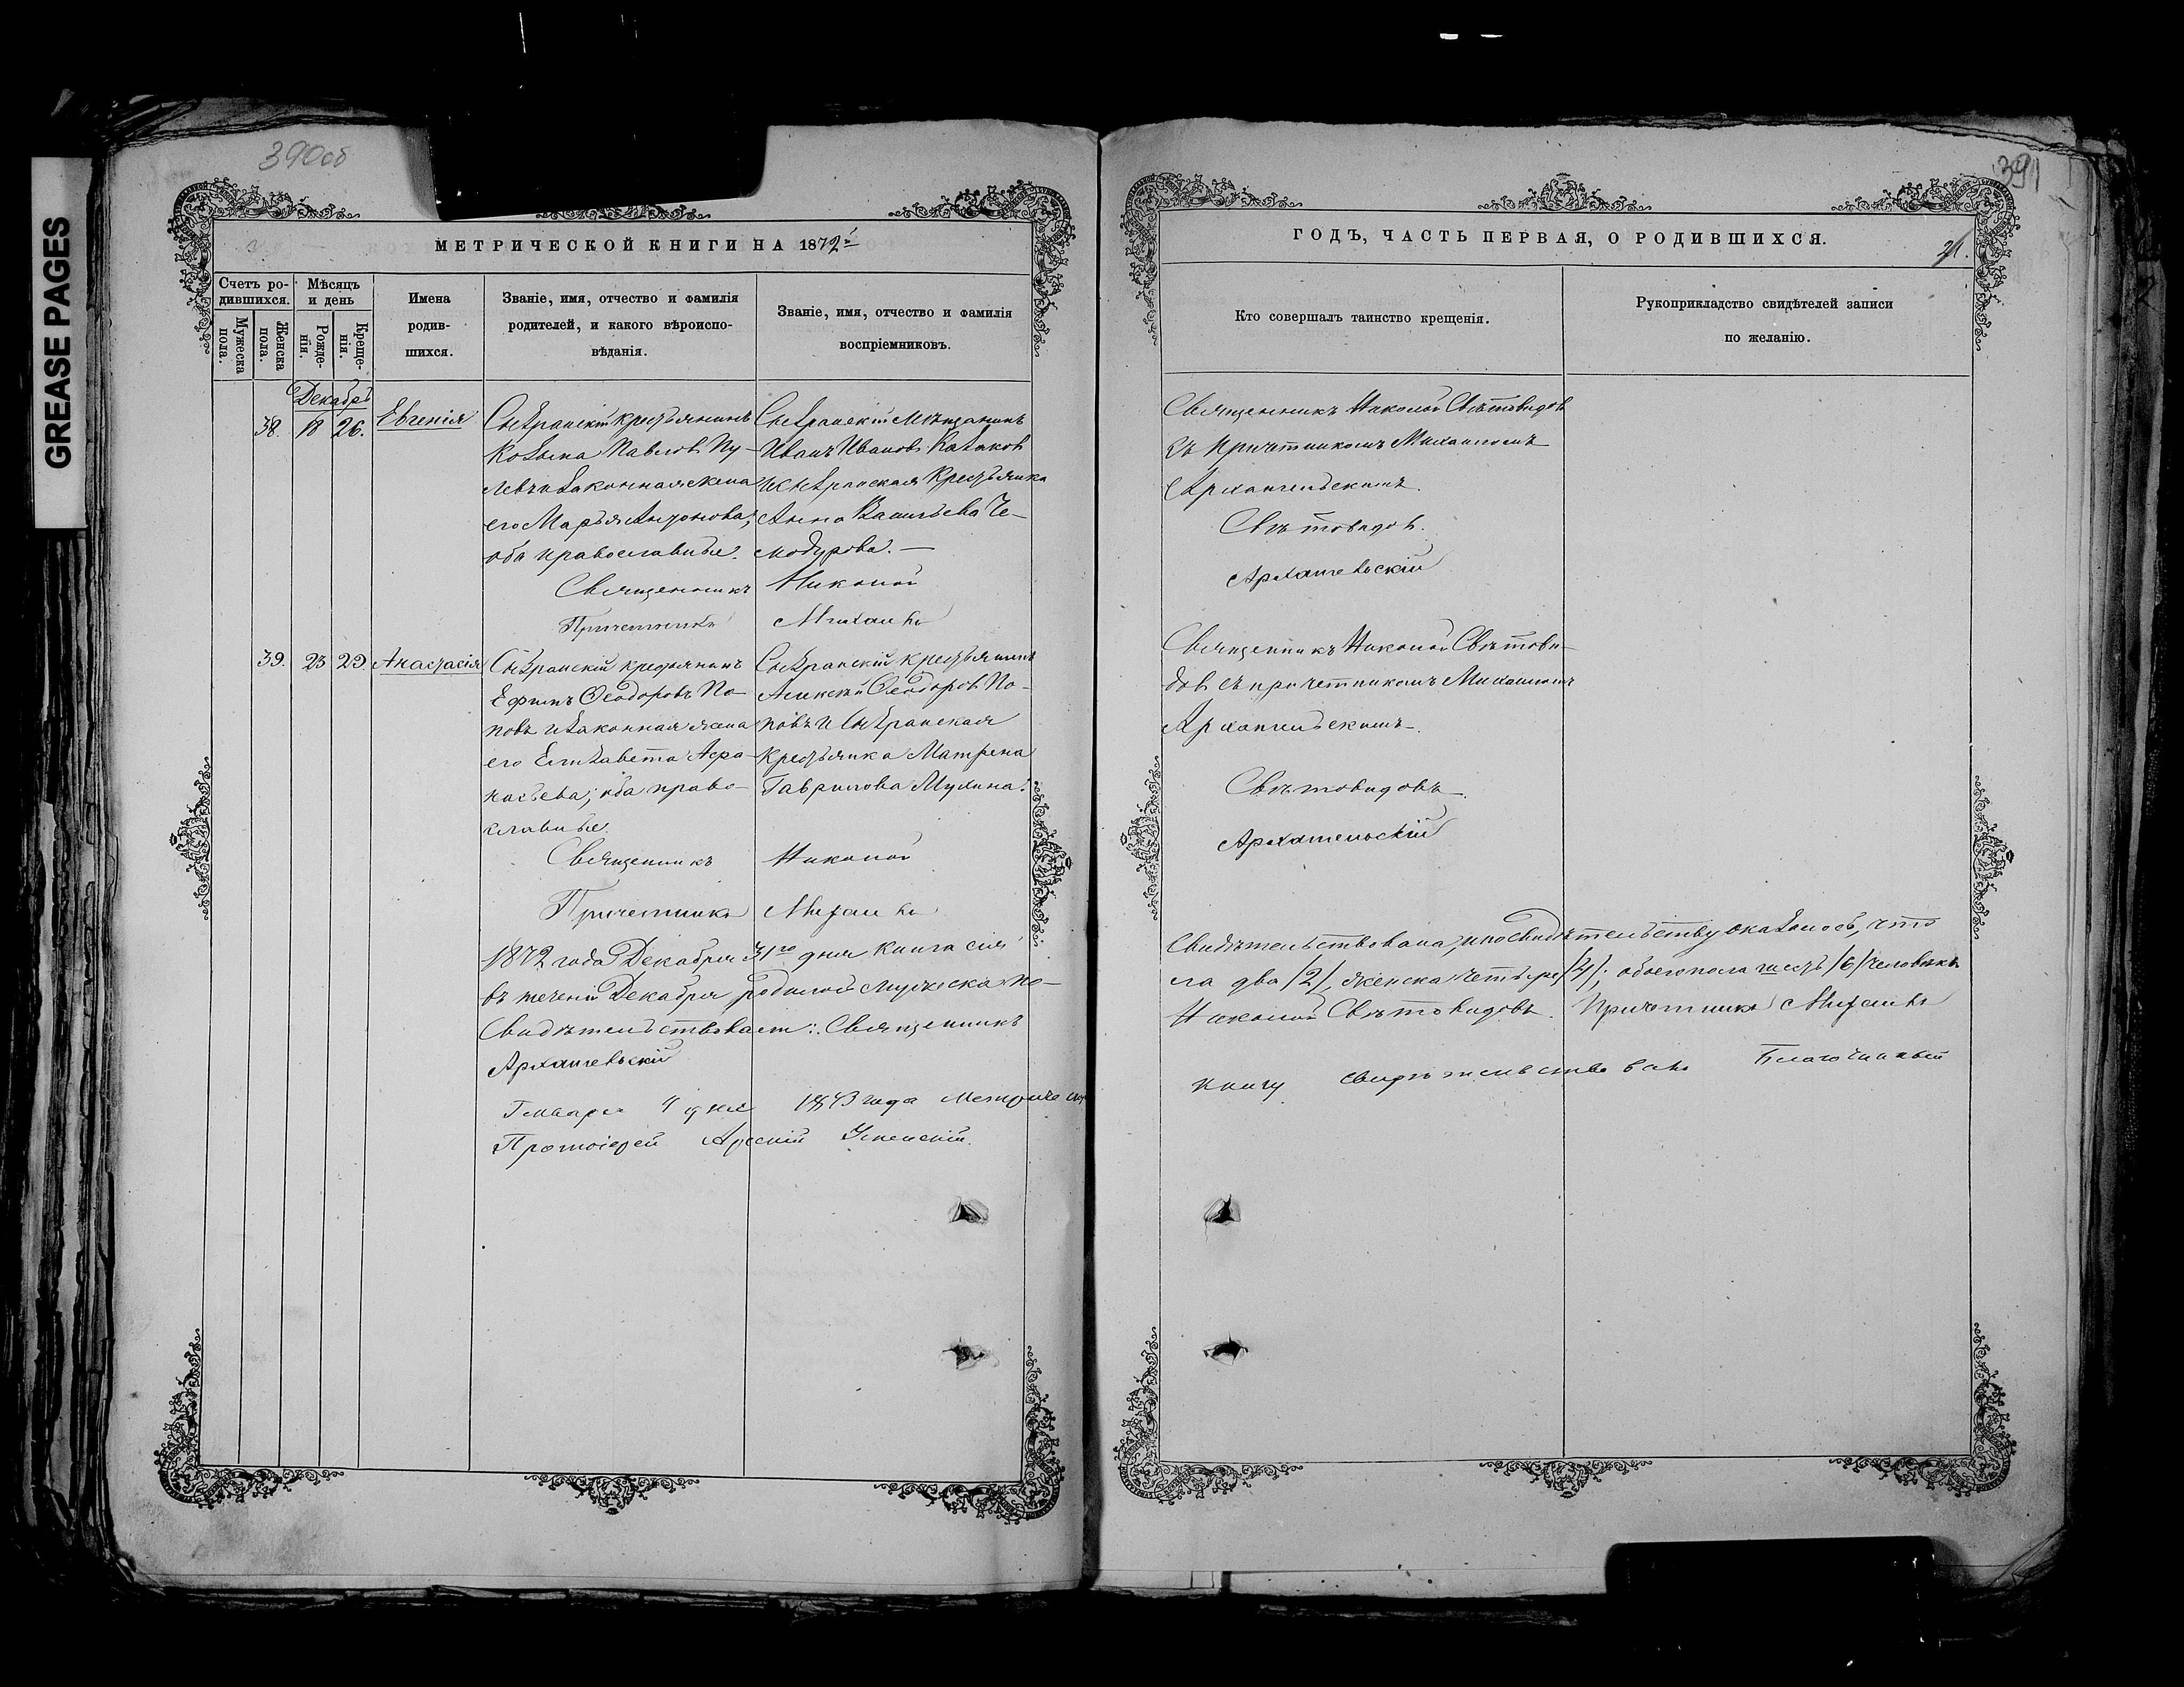 GREASE PAGES
390об
МЕТРИЧЕСКОЙ КНИГИ НА 1872й
Счетъ ро-
дившихся.
Мѣсяцъ
и день
Мужеска
пола.
Женска
пола.
Рожде-
нія.
Креще-
нія.
Имена
родив-
шихся.
Званіе, имя, отчество и фамилія
родителей, и какого вѣроиспо-
вѣданія.
Званіе, имя, отчество и фамилія
воспріемниковъ.
Декабрь
38. 18 26. Евгенія
Сызранскій крестьянинъ
Козьма Павловъ Пу-
левъ и законная жена
его Марья Антонова;
оба православные.
Сызранскій Мѣщанинъ
Иванъ Ивановъ Казаковъ
и Сызранская Крестьянка
Анна Васильева Че-
модурова. —
Священникъ Николай
Причетникъ Михаилъ
39. 23 29 Анастасія
Сызранскій крестьянинъ
Ефимъ Ѳеодоровъ По-
повъ и законная жена
его Елизавета Афа-
насьева; оба право-
славные
Сызранскій крестьянинъ
Алексѣй Ѳеодоровъ По-
повъ и Сызранская
крестьянка Матрена
Гаврилова Мухина.
Священникъ Николай
Причетникъ Михаилъ
1872 года Декабря 31го дня книга сія
въ теченіи Декабря родилось мужеска по-
Свидѣтельствовалъ: Священникъ
Архангельскій
Генваря 4 дня 1873 года Метрическую
Протоіерей Успенскій.
391
21.
ГОДЪ, ЧАСТЬ ПЕРВАЯ, О РОДИВШИХСЯ.
Кто совершалъ таинство крещенія.
Рукоприкладство свидѣтелей записи
по желанію.
Священникъ Николай Свѣтовидовъ
съ Причетникомъ Михаиломъ
Архангельскимъ.
Свѣтовидовъ.
Архангельскій
Священникъ Николай Свѣтови-
довъ съ причетникомъ Михаиломъ
Архангельскимъ.
Свѣтовидовъ.
Архангельскій
Свидѣтельствована, и по свидѣтельству оказалось, что
ла два /2/, женска четыре /4/; обоего пола шесть /6/ человѣкъ
Николай Свѣтовидовъ. Причетникъ Михаилъ
книгу свидѣтельствовалъ Благочинный